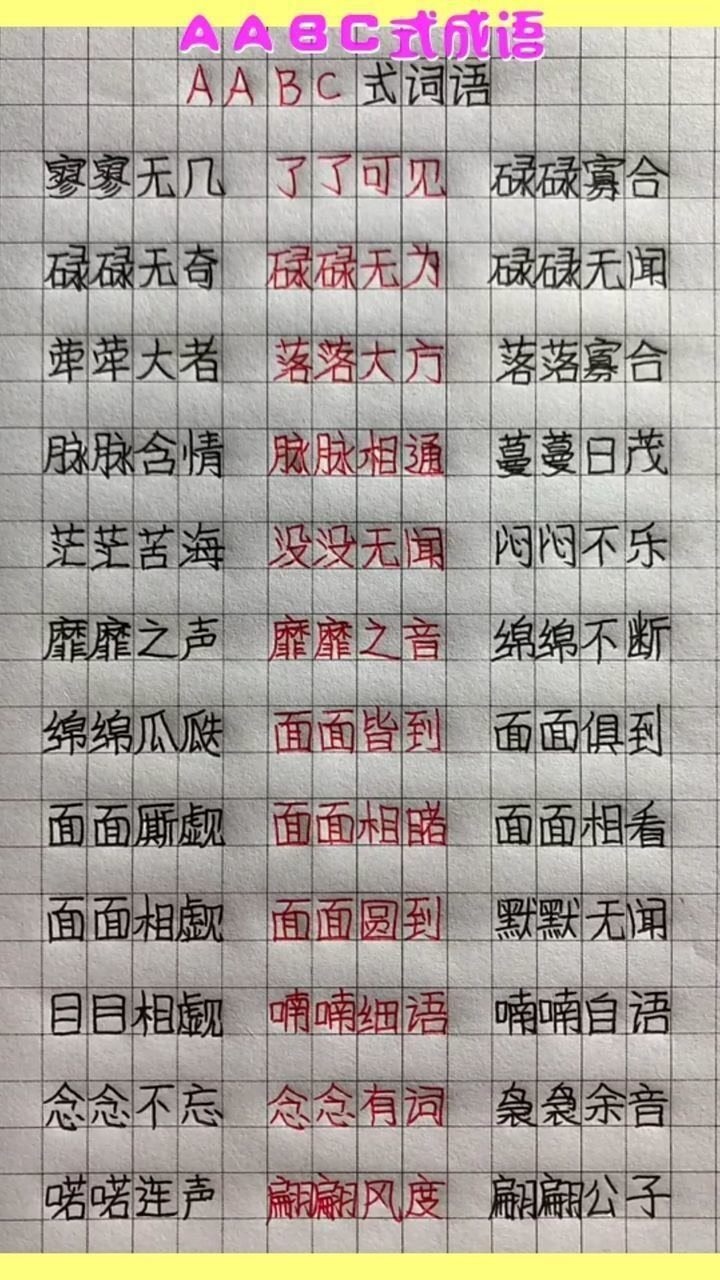 AABC式成语
AABC式词语
寥寥无几 了了可见 碌碌寡合
碌碌无奇 碌碌无为 碌碌无闻
荦荦大者 落落大方 落落寡合
脉脉含情 脉脉相通 蔓蔓日茂
茫茫苦海 没没无闻 闷闷不乐
靡靡之声 靡靡之音 绵绵不断
绵绵瓜瓞 面面皆到 面面俱到
面面厮觑 面面相睹 面面相看
面面相觑 面面圆到 默默无闻
目目相觑 喃喃细语 喃喃自语
念念不忘 念念有词 袅袅余音
喏喏连声 翩翩风度 翩翩公子